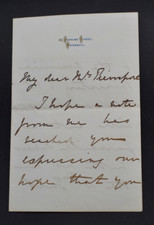 My dear Mr
I hope a note
from me has
reached you
expressing our
hope that you